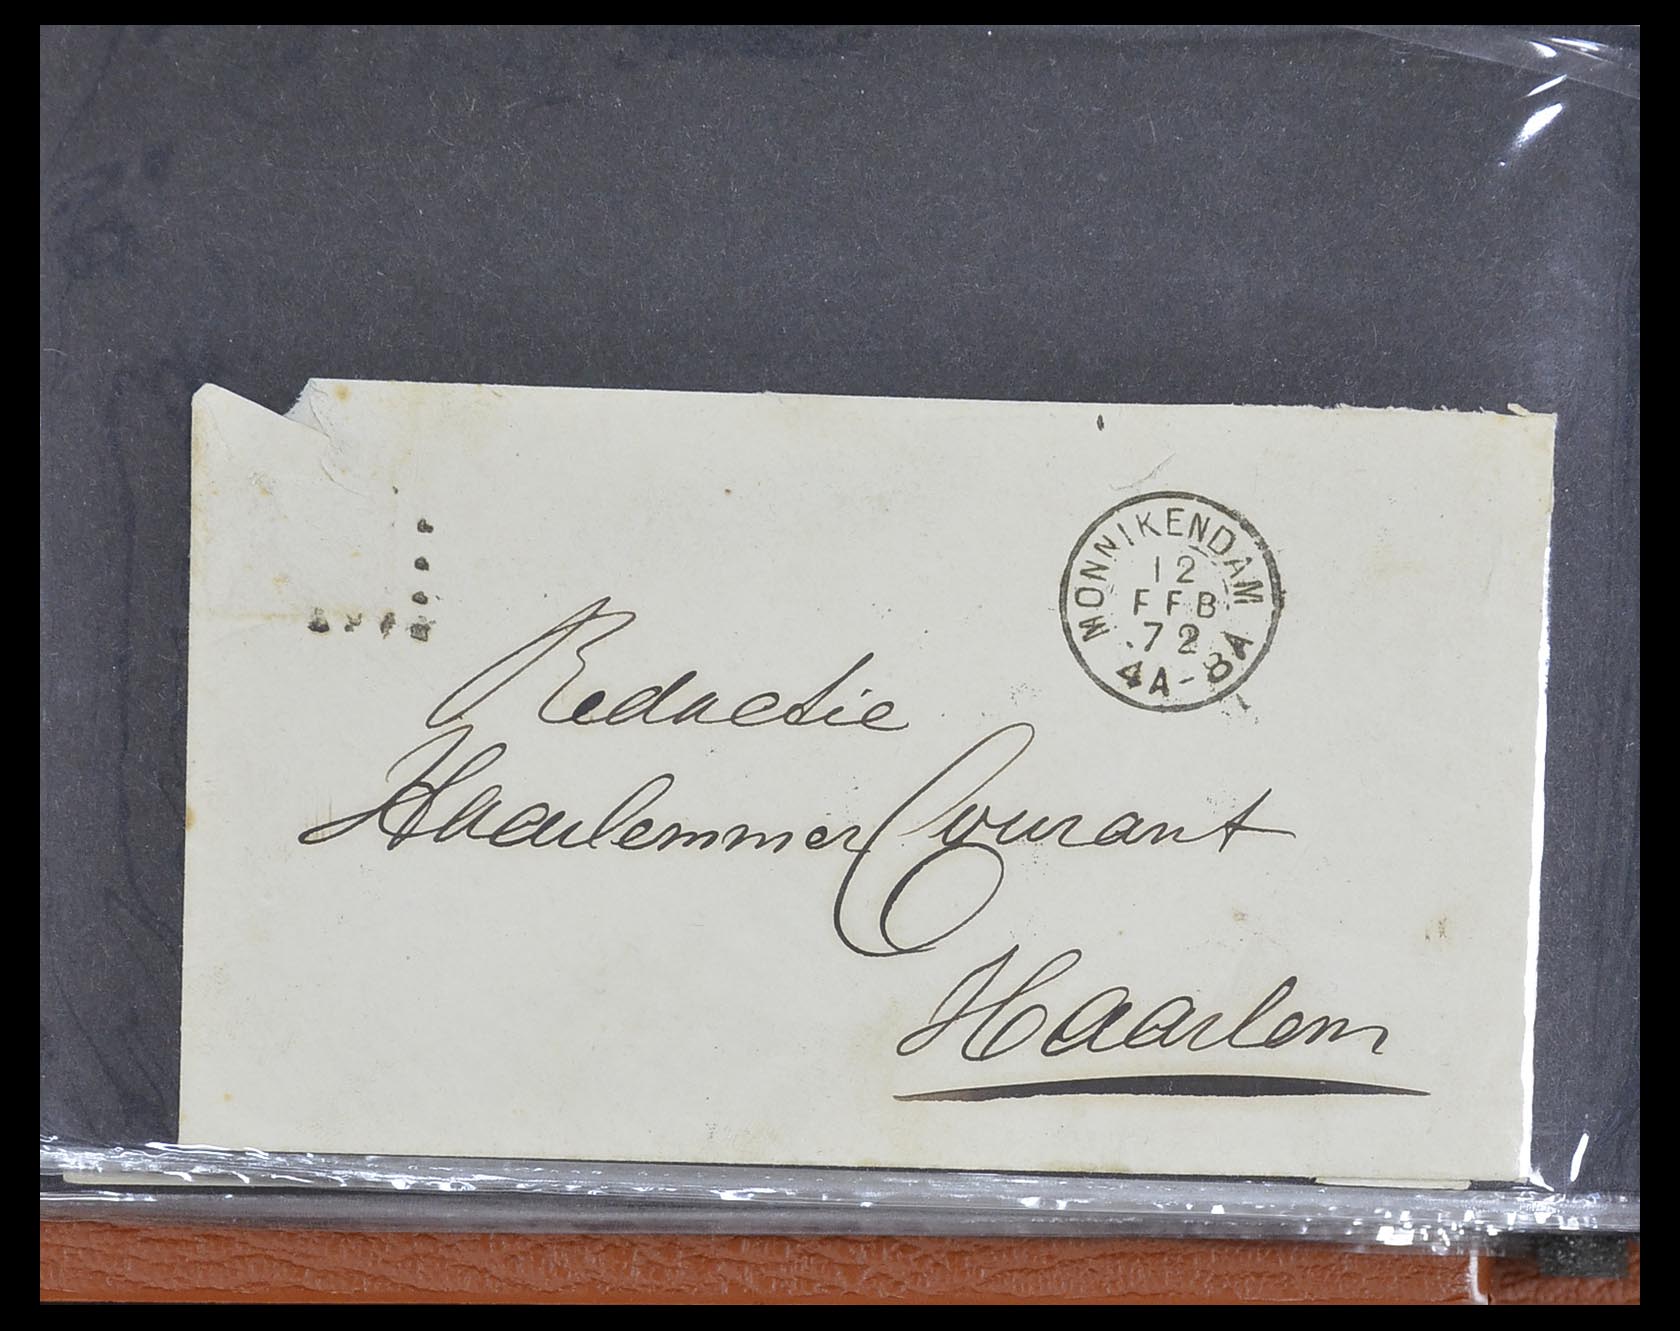 MONNIKENDAM
12
FFB
.72
4A-8A
Redactie
Haarlemmer Courant
Haarlem